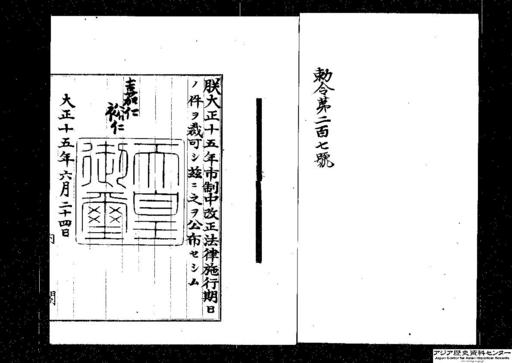 勅令第二百七號
朕大正十五年市制中改正法律施行期日
ノ件ヲ裁可シ玆ニ之ヲ公布セシム
嘉仁
裕仁
天皇御璽
大正十五年六月二十四日
内閣
アジア歴史資料センター
Japan Center for Asian Historical Records